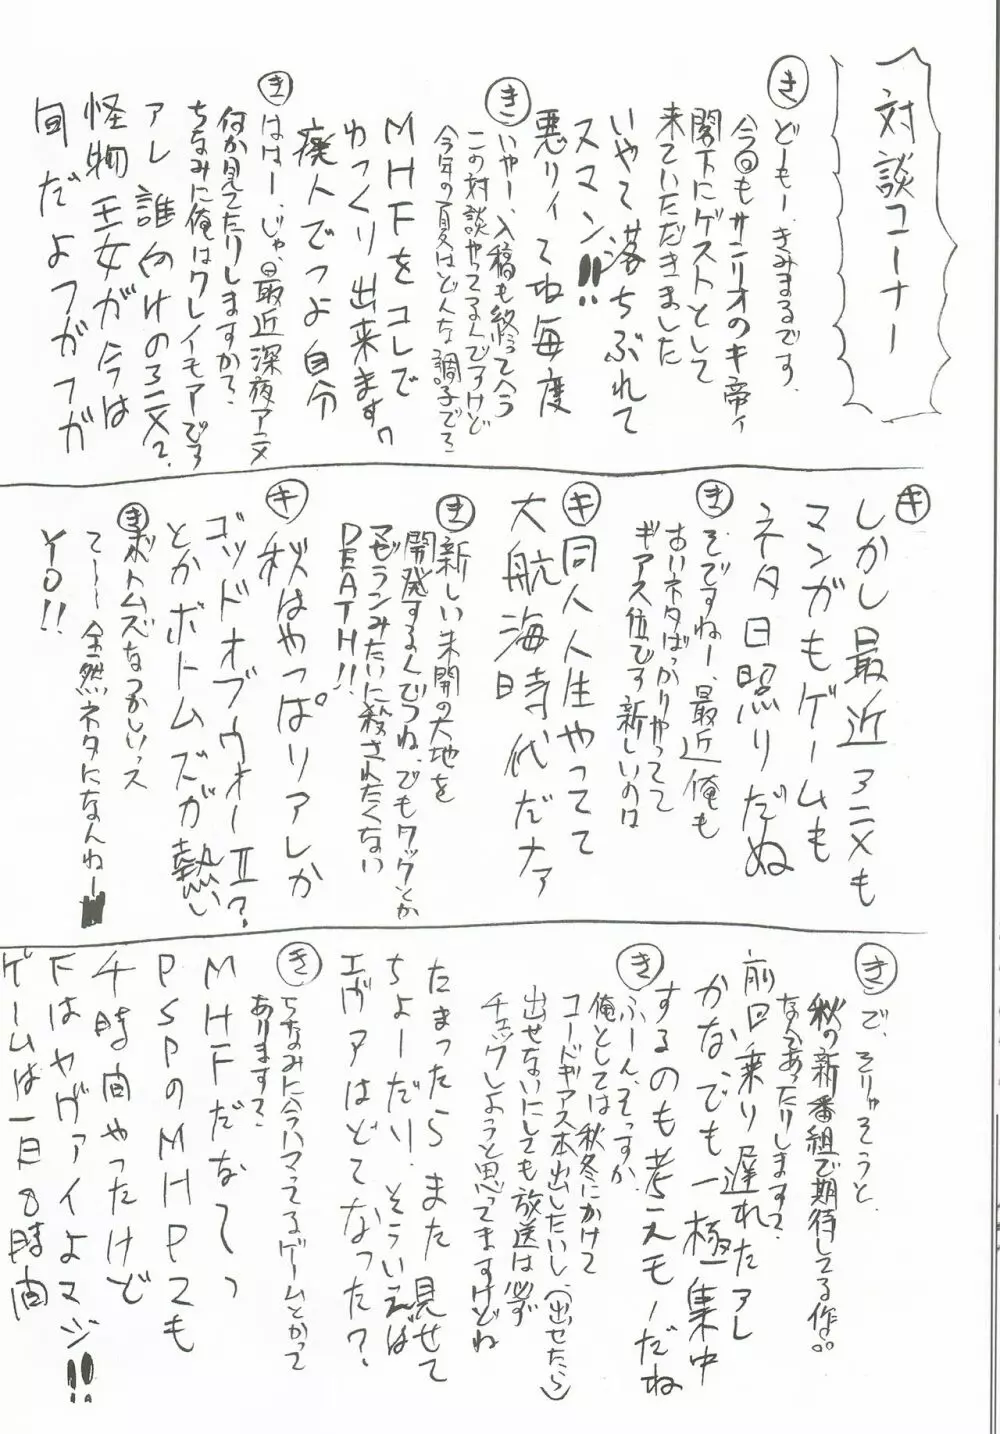 対談コーナー
き どーもー、きみまるです。
今回もサンリオのキ帝ィ
閣下にゲストとして
来ていただきました
いやて落ちぶれて
スマン!!
悪リィてね毎度
き いやー、入稿も終ってへう
この対談やってるんですけど
今年の夏はどんな調子でろ
MHFをコレで
ゆっくり出来ます。
廃人でつよ自分
き はは―、じゃ、最近深夜アニメ
何か見てたりしますか？
ちなみに俺はクレイモアでろ
アレ誰向けのアニメ？
怪物王女が今は
旬だよフガフガ
キ しかし最近アニメも
マンガもゲームも
ネタ日照りだぬ
き そですねー、最近俺も
古いネタばっかりやってて
ギアス位です新しいのは
キ 同人人生やってて
大航海時代だナァ
き 新しい未開の大地を
開発するんでつね、でもクックとか
マゼランみたいに殺されたくない
DEATH!!
キ 秋はやっぱりアレしか
ゴッドオブウォーⅡ？
とかボトムズが熱い
き ボトムズなつかしいっス
て～～全然ネタになんねー
YO!!
き で、そりゃそうと、
秋の新番組で期待してる作。。
なんてあったりします？
前回乗り遅れたアレ
かな、でも一極集中
するのも考えモノだね
き ふーん、そっすか
俺としては秋冬にかけて
コードギアス本出したいし、（出せたら）
出せないにしても放送は必ず
チェックしようと思ってますけどね
たまったらまた見せて
ちょーだい、そういえば
エヴァはどてなった？
き ちなみに今ハマってるゲームとかって
あります？
MHFだなてっ
PSPのMHP2も
千時間やったけど
Fはヤヴァイよマジ!!
ゲームは一日8時間